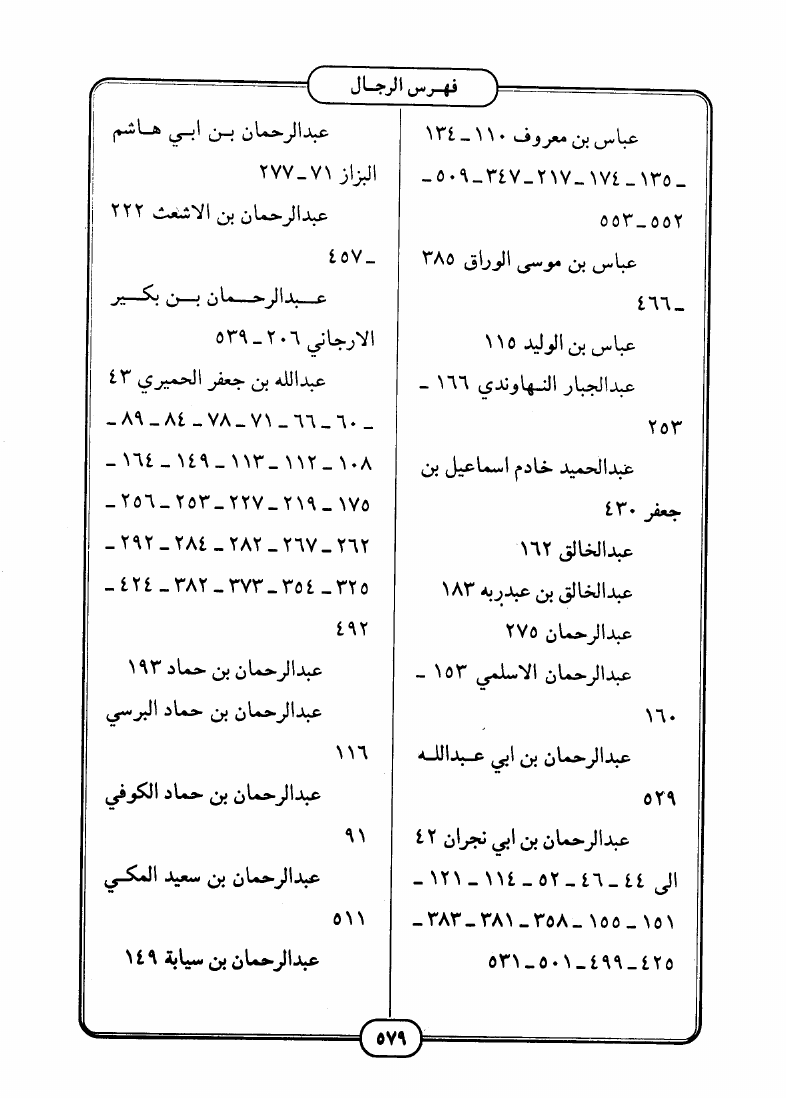 فهرس الرجال
عباس بن معروف ١١٠ ـ ١٣٤
ـ ١٣٥ ـ ١٧٤ ـ ٢١٧ ـ ٣٤٧ ـ ٥٠٩ ـ
٥٥٢ ـ ٥٥٣
عباس بن موسى الوراق ٣٨٥
ـ ٤٦٦
عباس بن الوليد ١١٥
عبدالجبار النهاوندي ١٦٦ ـ
٢٥٣
عبدالحميد خادم اسماعيل بن
جعفر ٤٣٠
عبدالخالق ١٦٢
عبدالخالق بن عبدربه ١٨٣
عبدالرحمان ٢٧٥
عبدالرحمان الاسلمي ١٥٣ ـ
١٦٠
عبدالرحمان بن ابي عبدالله
٥٢٩
عبدالرحمان بن ابي نجران ٤٢
الى ٤٤ ـ ٤٦ ـ ٥٢ ـ ١١٤ ـ ١٢١ ـ
١٥١ ـ ١٥٥ ـ ٣٥٨ ـ ٣٨١ ـ ٣٨٣ ـ
٤٢٥ ـ ٤٩٩ ـ ٥٠١ ـ ٥٣١
عبدالرحمان بن ابي هاشم
البزاز ٧١ ـ ٢٧٧
عبدالرحمان بن الاشعث ٢٢٢
ـ ٤٥٧
عبدالرحمان بن بكير
الارجاني ٢٠٦ ـ ٥٣٩
عبدالله بن جعفر الحميري ٤٣
ـ ٦٠ ـ ٦٦ ـ ٧١ ـ ٧٨ ـ ٨٤ ـ ٨٩ ـ
١٠٨ ـ ١١٢ ـ ١١٣ ـ ١٤٩ ـ ١٦٤ ـ
١٧٥ ـ ٢١٩ ـ ٢٢٧ ـ ٢٥٣ ـ ٢٥٦ ـ
٢٦٢ ـ ٢٦٧ ـ ٢٨٢ ـ ٢٨٤ ـ ٢٩٢ ـ
٣٢٥ ـ ٣٥٤ ـ ٣٧٣ ـ ٣٨٢ ـ ٤٢٤ ـ
٤٩٢
عبدالرحمان بن حماد ١٩٣
عبدالرحمان بن حماد البرسي
١١٦
عبدالرحمان بن حماد الكوفي
٩١
عبدالرحمان بن سعيد المكي
٥١١
عبدالرحمان بن سيابة ١٤٩
٥٧٩